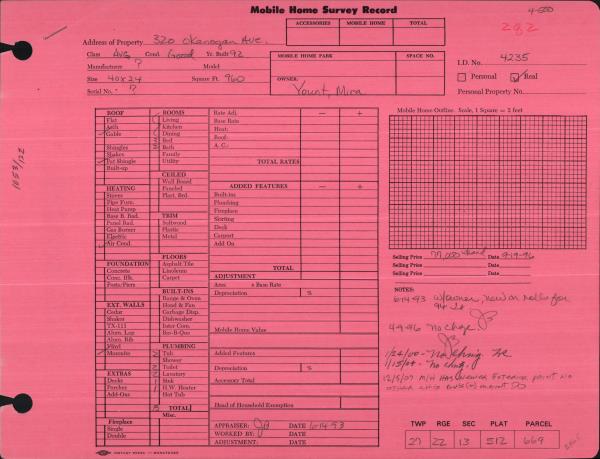 Mobile Home Survey Record
4-500
ACCESSORIES MOBILE HOME TOTAL
282
Address of Property 320 Okanogan Ave.
Class Avg Cond. Good Yr. Built 92
Manufacturer ? Model
Size 40x24 Square Ft. 960
Serial No. ?
MOBILE HOME PARK SPACE NO.
OWNER:
Yount, Mira
I.D. No. 4235
Personal Real
Personal Property No.
ROOF
Flat
Arch
Gable
Shingles
Shakes
Pat Shingle
Built-up
HEATING
Stoves
Pipe Furn.
Heat Pump
Base B. Rad.
Panel Rad.
Gas Burner
Electric
Air Cond.
FOUNDATION
Concrete
Conc. Blk.
Posts/Piers
EXT. WALLS
Cedar
Shakes
TX-111
Alum. Lap
Alum. Rib
Vinyl
Masonite
EXTRAS
Decks
Porches
Add-Ons
Fireplace
Single
Double
ROOMS
Living
Kitchen
Dining
Bed
Bath
Family
Utility
CEILED
Wall Board
Paneled
Plast. Brd.
TRIM
Softwood
Plastic
Metal
FLOORS
Asphalt Tile
Linoleum
Carpet
BUILT-INS
Range & Oven
Hood & Fan
Garbage Disp.
Dishwasher
Inter Com.
Bar-B-Que
PLUMBING
Tub
Shower
Toilet
Lavatory
Sink
H.W. Heater
Hot Tub
TOTAL
Misc.
Rate Adj. — +
Base Rate
Heat:
Roof:
A. C.:
TOTAL RATES
ADDED FEATURES — +
Built-ins
Plumbing
Fireplace
Skirting
Deck
Carport
Add On
TOTAL
ADJUSTMENT
Area x Base Rate
Depreciation %
Mobile Home Value
Added Features
Depreciation %
Accessory Total
Head of Household Exemption
APPRAISER: DATE 6-14-93
WORKED BY: DATE
ADJUSTMENT: DATE
Mobile Home Outline Scale, 1 Square = 2 feet
Selling Price 77,000 Date 9-19-96
Selling Price Date
Selling Price Date
NOTES:
6-14-93 w/owner, new on rolls for
94
4-9-96 no chge.
1/24/00 - no chng.
1/15/04 - no chng.
12/5/07 M/H has newer exterior paint no
other
TWP RGE SEC PLAT PARCEL
27 22 13 512 669